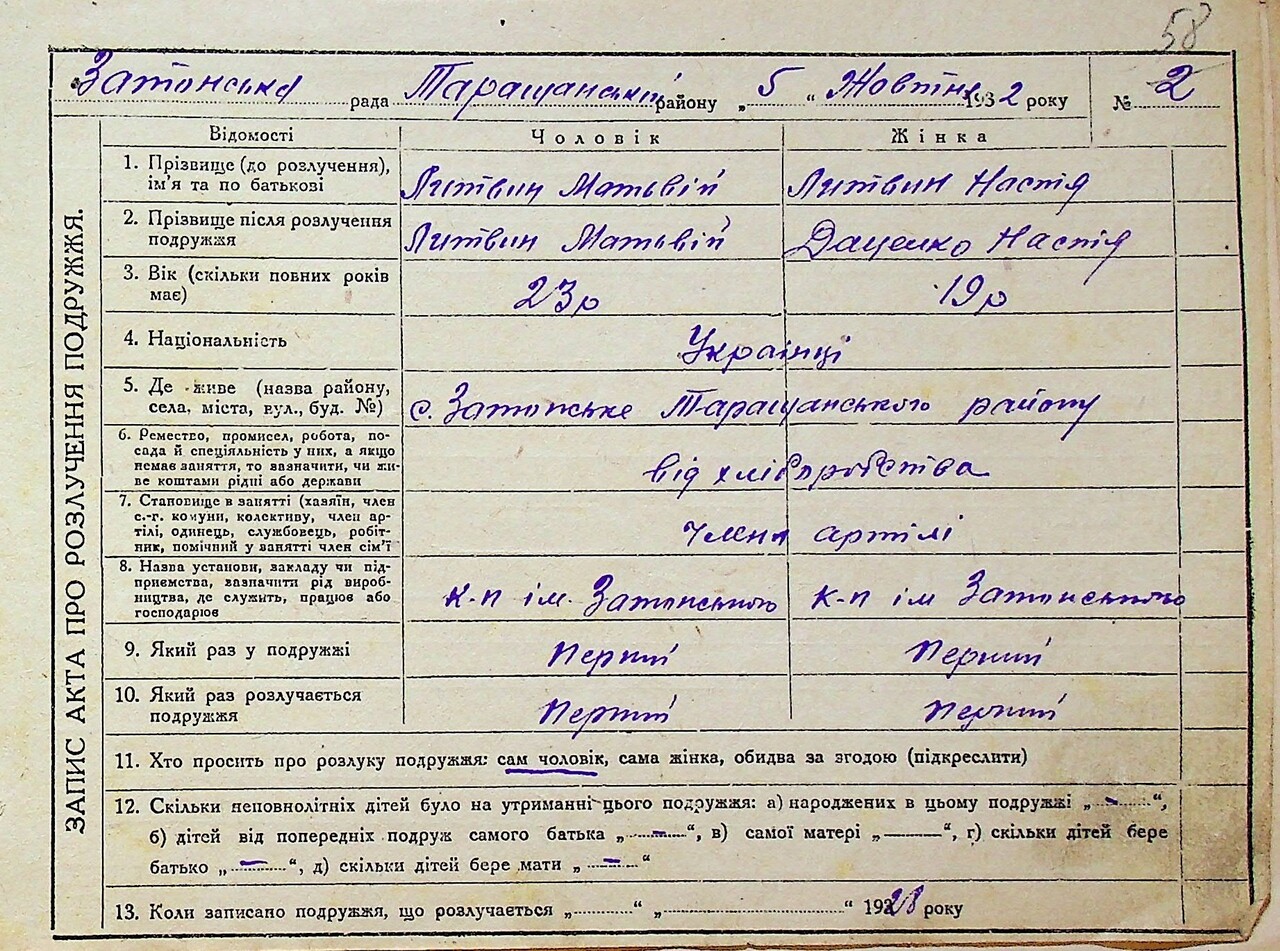 58
Затонська рада Таращанський району „ 5 “ Жовтня 1932 року № 2
ЗАПИС АКТА ПРО РОЗЛУЧЕННЯ ПОДРУЖЖЯ.
Відомості Чоловік Жінка
1. Прізвище (до розлучення),
ім'я та по батькові Литвин Матьвій Литвин Настя
2. Прізвище після розлучення
подружжя Литвин Матьвій Даценко Настя
3. Вік (скільки повних років
має) 23р 19р
4. Національність Українці
5. Де живе (назва району,
села, міста, вул., буд. №) с. Затонське Таращанського району
6. Ремество, промисел, робота, по-
сада й спеціяльність у них, а якщо
немає заняття, то зазначити, чи жи-
ве коштами рідні або держави від хліборобства
7. Становище в занятті (хазяїн, член
с.-г. комуни, колективу, член ар-
тілі, одинець, службовець, робіт-
ник, помічний у занятті член сім'ї члени артілі
8. Назва установи, закладу чи під-
приємства, зазначити рід вироб-
ництва, де служить, працює або
господарює к-п ім. Затонського к-п ім Затонського
9. Який раз у подружжі перший перший
10. Який раз розлучається
подружжя перший перший
11. Хто просить про розлуку подружжя: сам чоловік, сама жінка, обидва за згодою (підкреслити)
12. Скільки неповнолітніх дітей було на утриманні цього подружжя: а) народжених в цьому подружжі „ - “,
б) дітей від попередніх подруж самого батька „ - “, в) самої матері „ — “, г) скільки дітей бере
батько „ - “, д) скільки дітей бере мати „ - “
13. Коли записано подружжя, що розлучається „ “ „ “ 1928 року